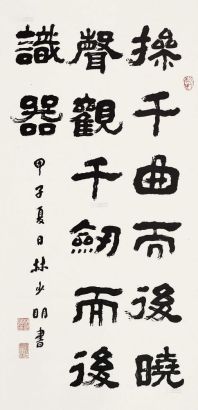 操千曲而後曉
聲觀千劒而後
識器
甲子夏日林少明書